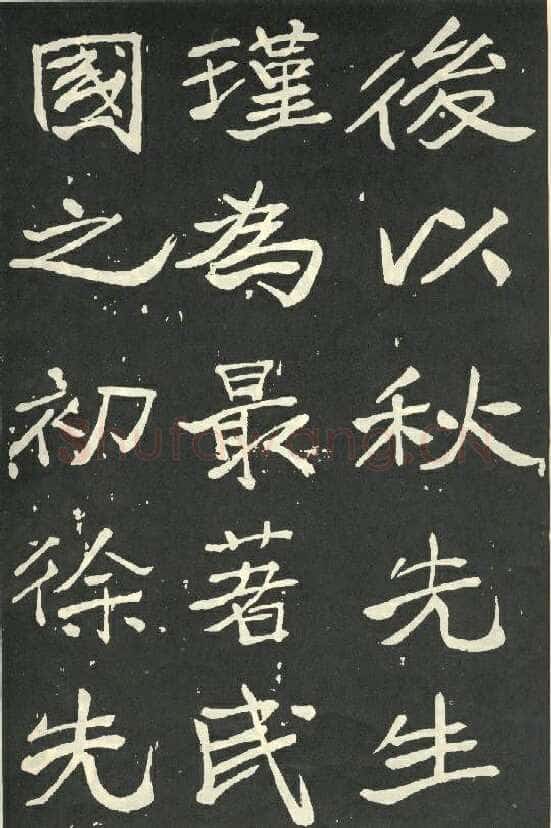 後以秋先生
瑾為最著民
國之初徐先
Shufawang.CN